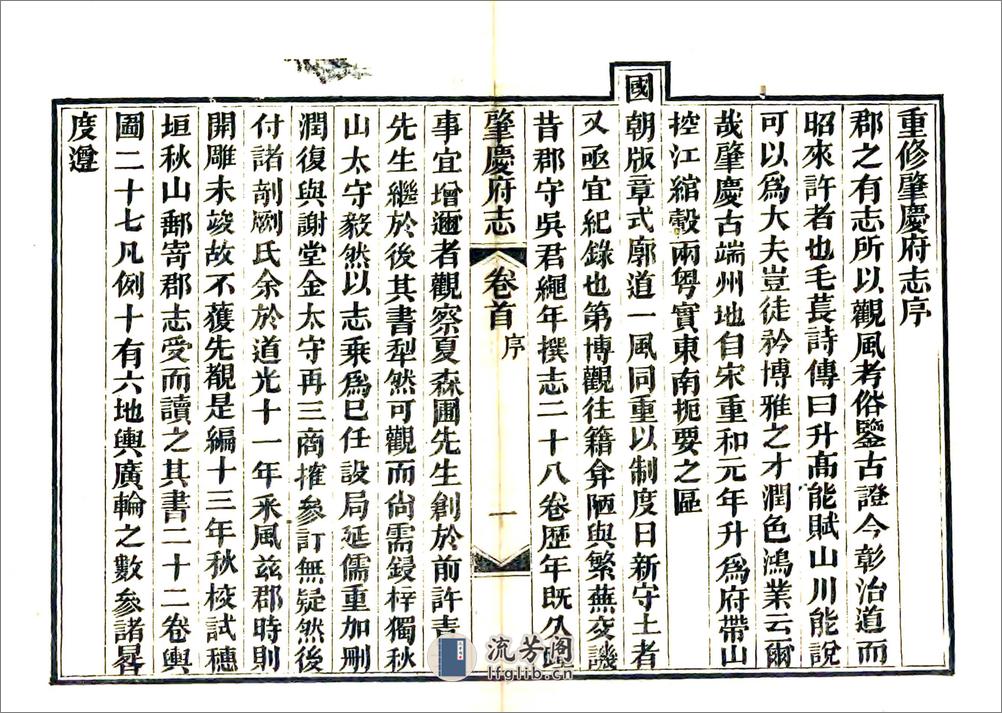 重修肇慶府志序
郡之有志所以觀風考俗鑒古證今彰治道而
昭來許者也毛萇詩傳曰升高能賦山川能說
可以爲大夫豈徒矜博雅之才潤色鴻業云爾
哉肇慶古端州地自宋重和元年升爲府帶山
控江綰轂兩粤實東南扼要之區
國朝版章式廓道一風同重以制度日新守土者
又亟宜紀錄也第博觀往籍弇陋與繁蕪交譏
昔郡守吳君繩年撰志二十八卷歷年既久
肇慶府志
卷首
序
一
事宜增邇者觀察夏森圃先生創於前許青
先生繼於後其書犁然可觀而尚需鋟梓獨秋
山太守毅然以志乘爲已任設局延儒重加刪
潤復與謝堂金太守再三商搉參訂無疑然後
付諸剞劂氏余於道光十一年釆風兹郡時則
開雕未竣故不獲先覩是編十三年秋校試穗
垣秋山郵寄郡志受而讀之其書二十二卷輿
圖二十七凡例十有六地輿廣輪之數參諸晷
度遵
流芳阁
lfglib.cn